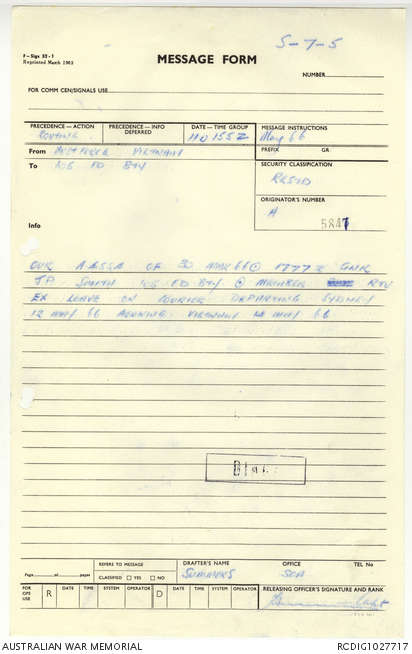 F-Sigs 52-1
Reprinted March 1963
S-7-5
MESSAGE FORM
NUMBER
FOR COMM CEN/SIGNALS USE
PRECEDENCE—ACTION
ROUTINE
PRECEDENCE—INFO
DEFERRED
DATE—TIME GROUP
110155Z
MESSAGE INSTRUCTIONS
May 66
From AUSTFORCE VIETNAM
PREFIX GR
To 105 FD BTY
SECURITY CLASSIFICATION
RESTD
ORIGINATOR'S NUMBER
A 5847
Info
OUR A OF 30 MAR 66 GNR
SMITH 105 FD BTY RTU
EX LEAVE ON COURIER DEPARTING SYDNEY
12 MAY 66 ARRIVING VIETNAM MAY 66
Page of pages
REFERS TO MESSAGE
CLASSIFIED YES NO
DRAFTER'S NAME
SUMMERS
OFFICE
TEL No
FOR OPS USE
R DATE TIME SYSTEM OPERATOR D DATE TIME SYSTEM OPERATOR
RELEASING OFFICER'S SIGNATURE AND RANK
Capt
AUSTRALIAN WAR MEMORIAL
RCDIG1027717